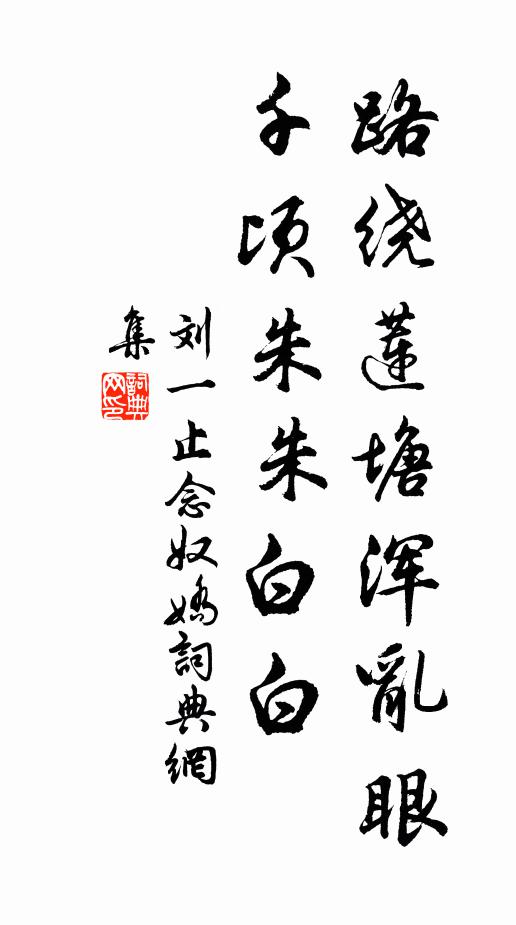 路绕莲塘浑乱眼
千顷朱朱白白
刘一止念奴嬌詞典網
集
詞典
网印